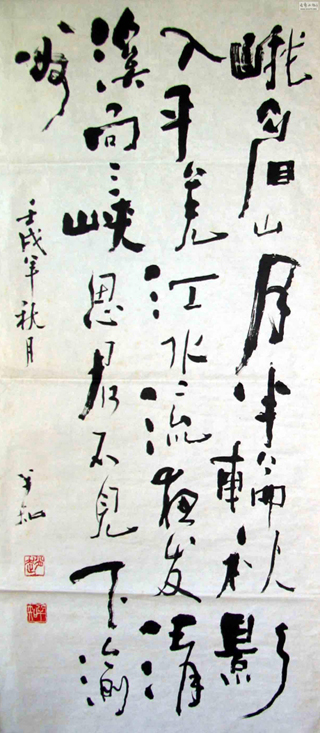 峨眉山月半輪秋影
入平羌江水流夜发清
溪向三峽思君不見下渝
州
壬戌年秋月